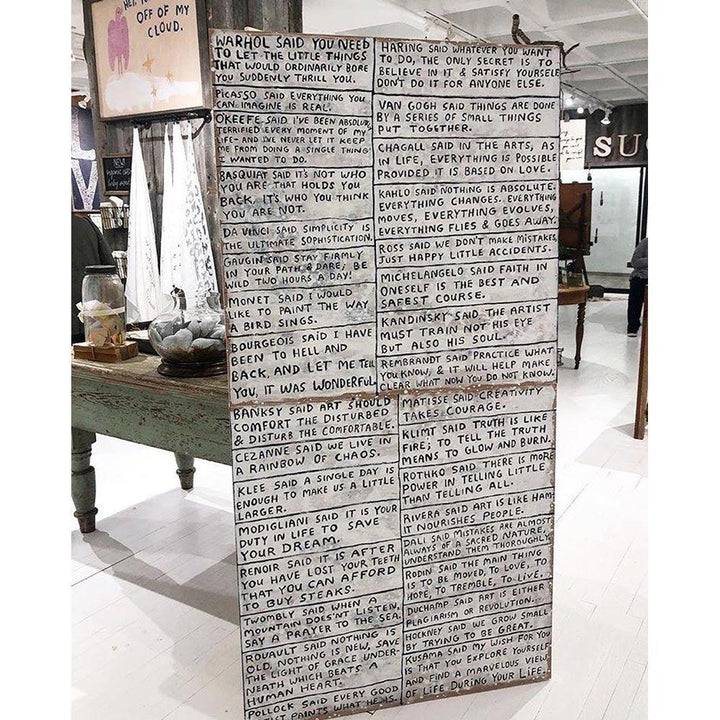 OFF OF MY
CLOUD.
NEW
SU
WARHOL SAID YOU NEED
TO LET THE LITTLE THINGS
THAT WOULD ORDINARILY BORE
YOU SUDDENLY THRILL YOU.
PICASSO SAID EVERYTHING YOU
CAN IMAGINE IS REAL.
OKEEFE SAID I'VE BEEN ABSOLUTE
TERRIFIED EVERY MOMENT OF MY
LIFE- AND I'VE NEVER LET IT KEEP
ME FROM DOING A SINGLE THING
I WANTED TO DO.
BASQUIAT SAID IT'S NOT WHO
YOU ARE THAT HOLDS YOU
BACK, IT'S WHO YOU THINK
YOU ARE NOT.
DA VINCI SAID SIMPLICITY IS
THE ULTIMATE SOPHISTICATION.
GAUGIN SAID STAY FIRMLY
IN YOUR PATH & DARE; BE
WILD TWO HOURS A DAY!
MONET SAID I WOULD
LIKE TO PAINT THE WAY
A BIRD SINGS.
BOURGEOIS SAID I HAVE
BEEN TO HELL AND
BACK, AND LET ME TELL
YOU, IT WAS WONDERFUL.
BANKSY SAID ART SHOULD
COMFORT THE DISTURBED
& DISTURB THE COMFORTABLE.
CEZANNE SAID WE LIVE IN
A RAINBOW OF CHAOS.
KLEE SAID A SINGLE DAY IS
ENOUGH TO MAKE US A LITTLE
LARGER.
MODIGLIANI SAID IT IS YOUR
DUTY IN LIFE TO SAVE
YOUR DREAM.
RENOIR SAID IT IS AFTER
YOU HAVE LOST YOUR TEETH
THAT YOU CAN AFFORD
TO BUY STEAKS.
TWOMBLY SAID WHEN A
MOUNTAIN DOES'NT LISTEN,
SAY A PRAYER TO THE SEA.
ROUAULT SAID NOTHING IS
OLD, NOTHING IS NEW, SAVE
THE LIGHT OF GRACE UNDER-
NEATH WHICH BEATS A
HUMAN HEART.
POLLOCK SAID EVERY GOOD
ARTIST PAINTS WHAT HE IS.
HARING SAID WHATEVER YOU WANT
TO DO, THE ONLY SECRET IS TO
BELIEVE IN IT & SATISFY YOURSELF
DON'T DO IT FOR ANYONE ELSE.
VAN GOGH SAID THINGS ARE DONE
BY A SERIES OF SMALL THINGS
PUT TOGETHER.
CHAGALL SAID IN THE ARTS, AS
IN LIFE, EVERYTHING IS POSSIBLE
PROVIDED IT IS BASED ON LOVE.
KAHLO SAID NOTHING IS ABSOLUTE.
EVERYTHING CHANGES. EVERYTHING
MOVES, EVERYTHING EVOLVES,
EVERYTHING FLIES & GOES AWAY.
ROSS SAID WE DON'T MAKE MISTAKES,
JUST HAPPY LITTLE ACCIDENTS.
MICHELANGELO SAID FAITH IN
ONESELF IS THE BEST AND
SAFEST COURSE.
KANDINSKY SAID THE ARTIST
MUST TRAIN NOT HIS EYE
BUT ALSO HIS SOUL.
REMBRANDT SAID PRACTICE WHAT
YOU KNOW, & IT WILL HELP MAKE
CLEAR WHAT NOW YOU DO NOT KNOW.
MATISSE SAID CREATIVITY
TAKES COURAGE.
KLIMT SAID TRUTH IS LIKE
FIRE; TO TELL THE TRUTH
MEANS TO GLOW AND BURN.
ROTHKO SAID THERE IS MORE
POWER IN TELLING LITTLE
THAN TELLING ALL.
RIVERA SAID ART IS LIKE HAM-
IT NOURISHES PEOPLE.
DALI SAID MISTAKES ARE ALMOST
ALWAYS OF A SACRED NATURE,
UNDERSTAND THEM THOROUGHLY.
RODIN SAID THE MAIN THING
IS TO BE MOVED, TO LOVE, TO
HOPE, TO TREMBLE, TO LIVE.
DUCHAMP SAID ART IS EITHER
PLAGIARISM OR REVOLUTION.
HOCKNEY SAID WE GROW SMALL
BY TRYING TO BE GREAT.
KUSAMA SAID MY WISH FOR YOU
IS THAT YOU EXPLORE YOURSELF
AND FIND A MARVELOUS VIEW
OF LIFE DURING YOUR LIFE.